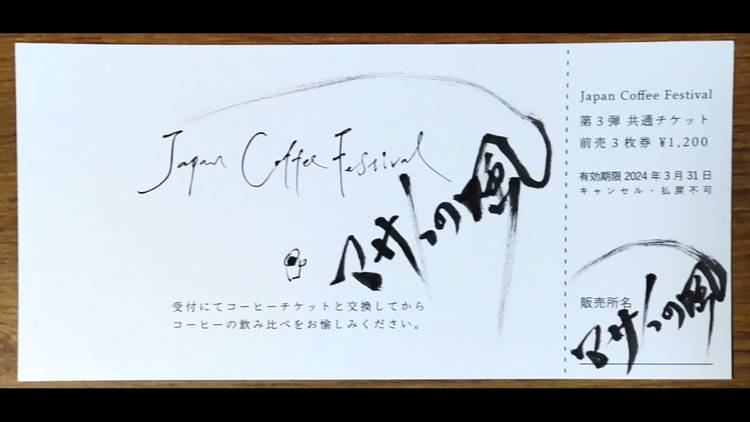 Japan Coffee Festival
受付にてコーヒーチケットと交換してから
コーヒーの飲み比べをお愉しみください。
Japan Coffee Festival
第3弾 共通チケット
前売3枚券 ¥1,200
有効期限 2024年3月31日
キャンセル・払戻不可
販売所名